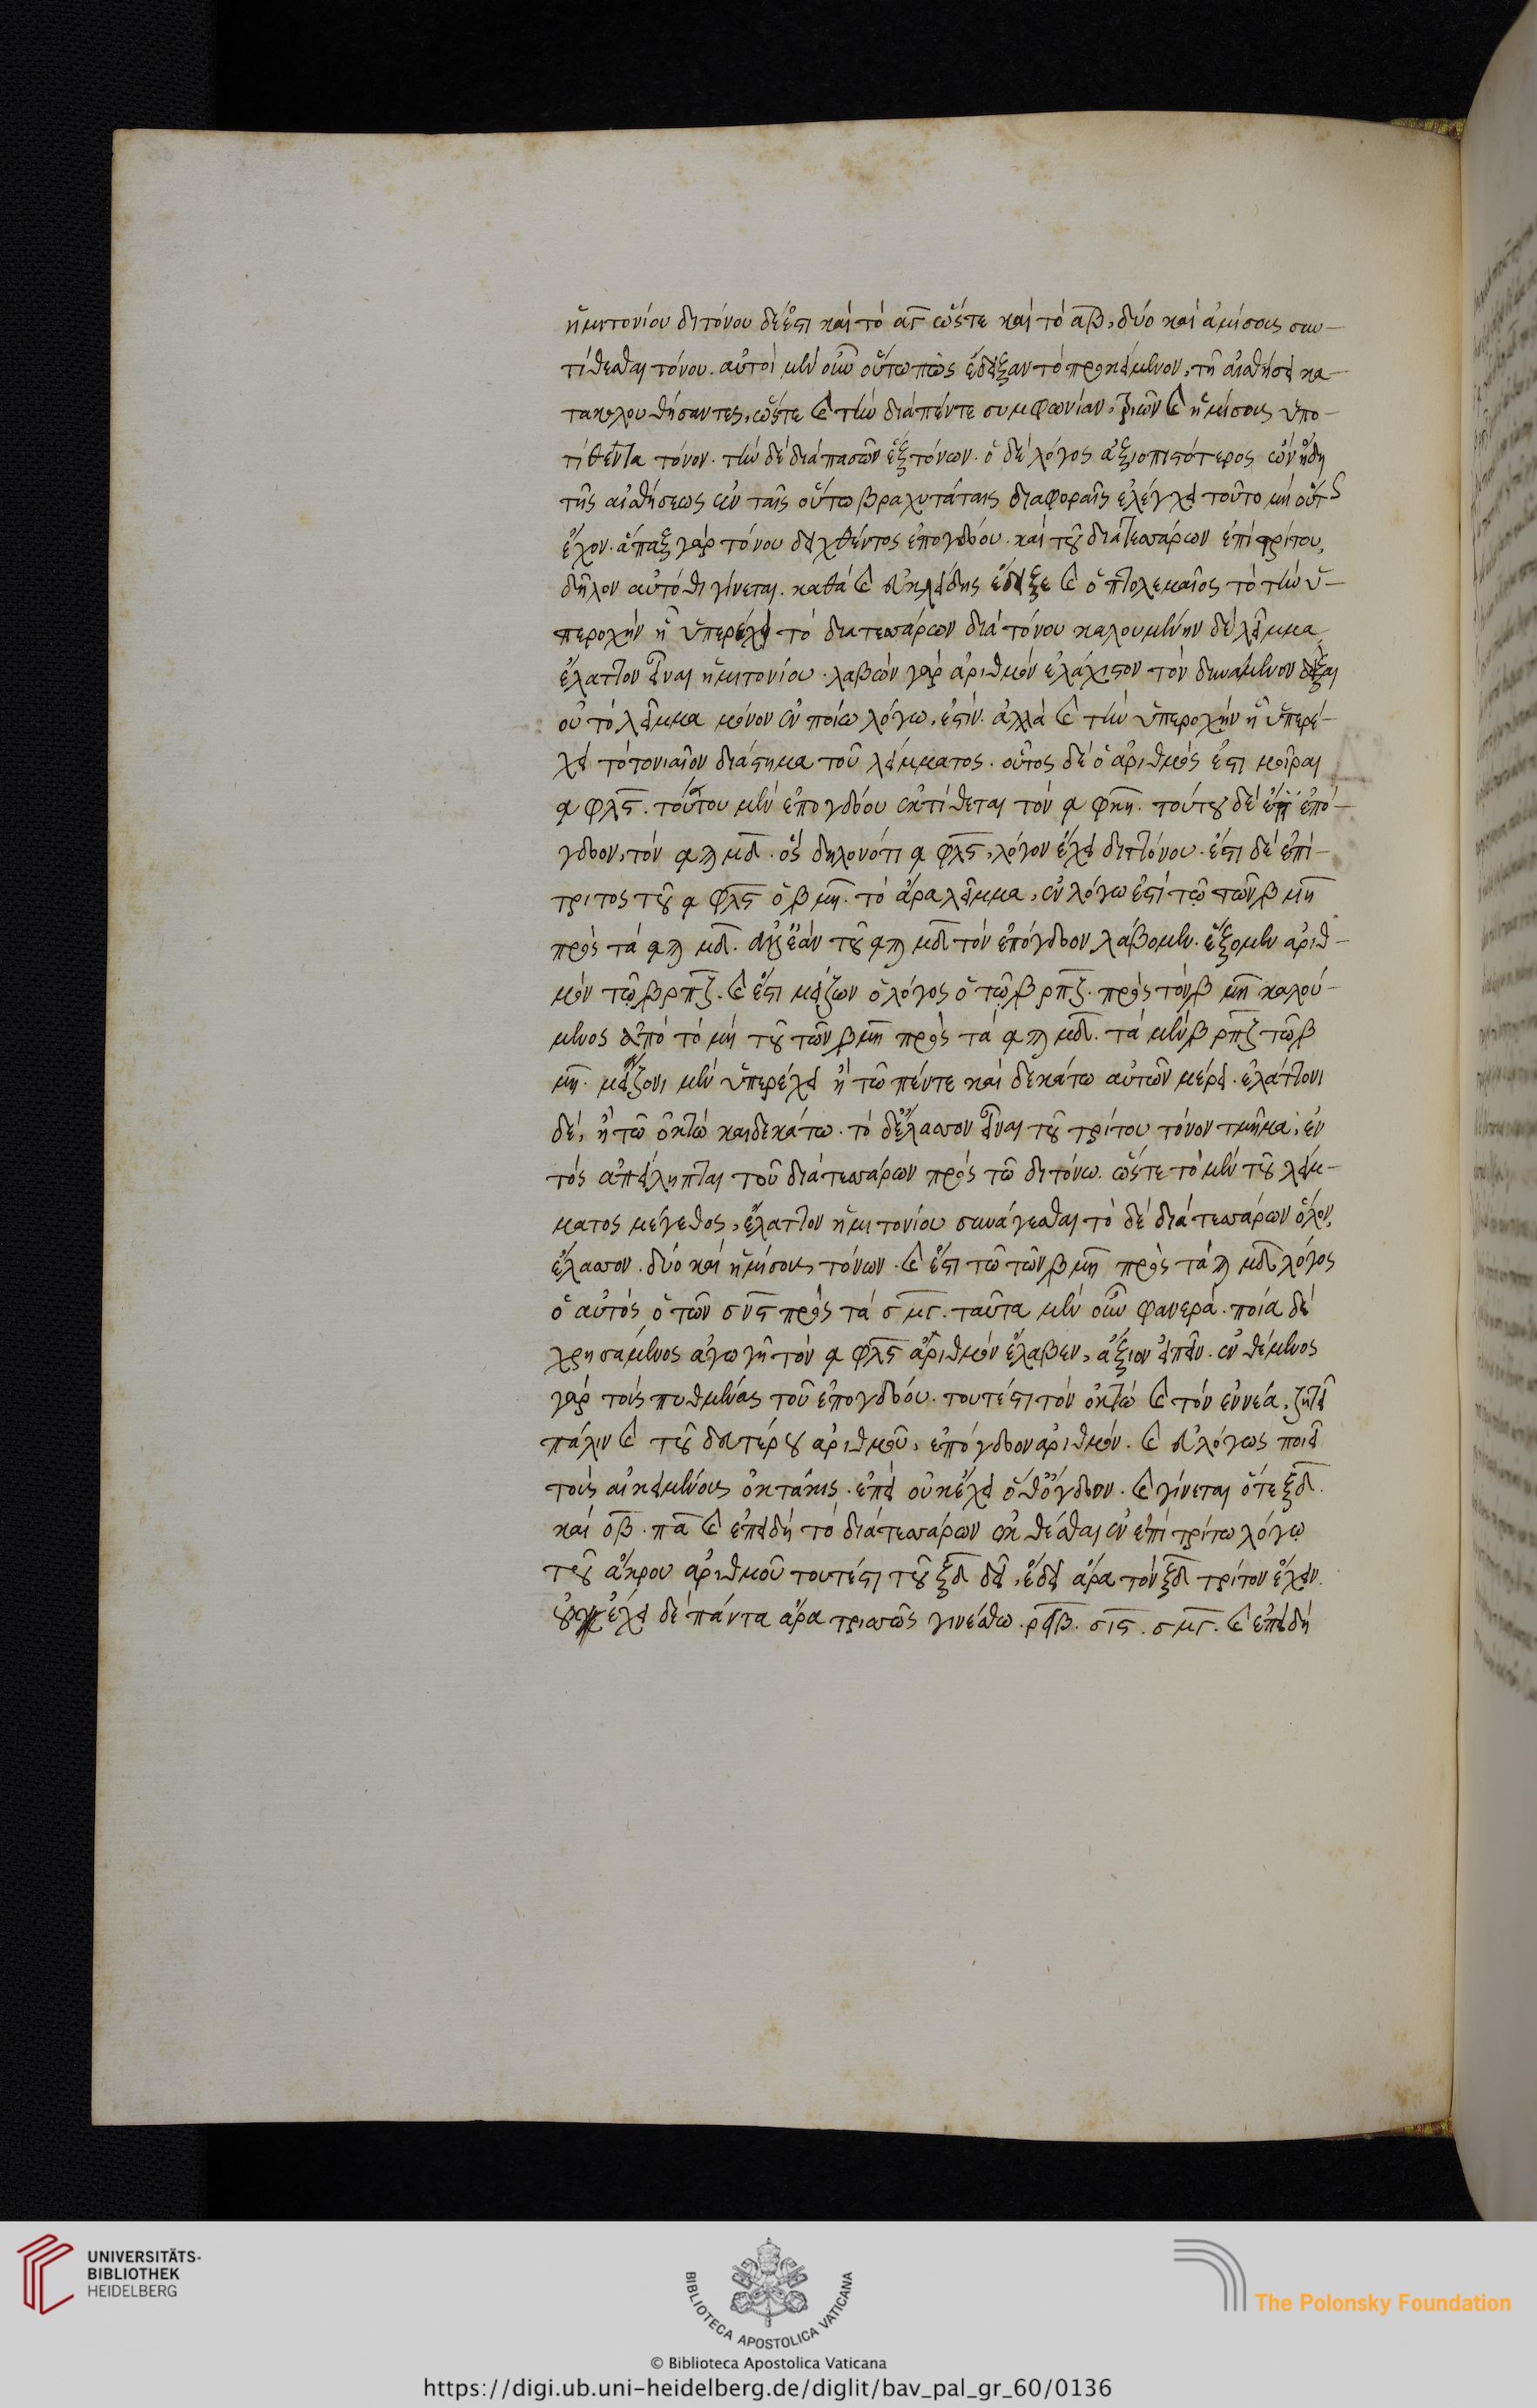 ἡμιτονίου διτόνου δέ ἐστι καὶ τὸ αγ ὥστε καὶ τὸ αβ, δύο καὶ ἁμίσους συν-
τίθεσθαι τόνου. αὐτοὶ μὲν οὖν οὕτω πὼς ἔδειξαν τὸ προκείμενον, τῇ αἰσθήσει κα-
τακολουθήσαντες, ὥστε καὶ τὴν διαπέντε συμφωνίαν, τριῶν καὶ ἡμίσους ὑπο-
τίθενται τόνον. τὴν δὲ διαπασῶν ἓξ τόνων. ὁ δὲ λόγος ἀξιοπιστότερος ὢν ἤδη
τῆς αἰσθήσεως ἐν ταῖς οὕτω βραχυτάταις διαφοραῖς ἐλέγχει τοῦτο μὴ οὕτως
ἔχον. ἅπαξ γὰρ τόνου δειχθέντος ἐπογδόου. καὶ τοῦ διατεσσάρων ἐπιτρίτου,
δῆλον αὐτόθι γίνεται. καθὰ καὶ εὐκλείδης ἔδειξε καὶ ὁ πτολεμαῖος τὸ τὴν ὑ-
περοχὴν ᾗ ὑπερέχει τὸ διατεσσάρων διατόνου καλουμένην δὲ λεῖμμα
ἔλαττον εἶναι ἡμιτονίου. λαβὼν γὰρ ἀριθμὸν ἐλάχιστον τὸν δυνάμενον δεῖξαι
οὐ τὸ λεῖμμα μόνον ἐν ποίω λόγω, ἐστίν. ἀλλὰ καὶ τὴν ὑπεροχὴν ᾗ ὑπερέ-
χει τὸ τονιαῖον διάστημα τοῦ λείμματος. οὗτος δὲ ὁ ἀριθμός ἐστι μοῖραι
α φλς. τούτου μὲν ἐπογδόου ἐκτίθεται τὸν α ψκη. τούτου δὲ ἔτι ἐπό-
γδοον, τὸν α ϡ μδ. ὃς δηλονότι α φλς, λόγον ἔχει διττόνου. ἔστι δὲ ἐπί-
τριτος τοῦ α φλς ὁ β μη. τὸ ἄρα λεῖμμα, ἐν λόγω ἐστὶ τῶ τῶν β μη
πρὸς τὰ α ϡ μδ. ἐὰν τοῦ α ϡ μδ τὸν ἐπόγδοον λάβομεν. ἕξομεν ἀριθ-
μὸν τῶν β ρπζ. καὶ ἔστι μείζων ὁ λόγος ὁ τῶν β ρπζ. πρὸς τὸν β μη καλού-
μενος ἀπὸ τὸ μὴ τοῦ τῶν β μη πρὸς τὰ α ϡ μδ. τὰ μὲν β ρπζ τῶν β
μη. μείζονι μὲν ὑπερέχει ἢ τῶ πέντε καὶ δεκάτω αὐτῶν μέρει. ἐλάττονι
δέ, ἢ τῶ ὀκτὼ καιδεκάτω. τὸ δ' ἔλασσον εἶναι τοῦ τρίτου τόνον τμῆμα, ἐν
τὸς ἀπείληπται τοῦ διατεσσάρων πρὸς τῶ διτόνω. ὥστε τὸ μὲν τοῦ λείμ-
ματος μέγεθος, ἔλαττον ἡμιτονίου συνάγεσθαι τὸ δὲ διατεσσάρων ὅλον,
ἔλασσον. δύο καὶ ἡμίσους τόνων. καὶ ἔστι τῶ τῶν β μη πρὸς τὰ ϡ μδ λόγος
ὁ αὐτὸς ὁ τῶν σνς πρὸς τὰ σμγ. ταῦτα μὲν οὖν φανερά. ποία δὲ
χρησάμενος ἀγωγῇ τὸν α φλς ἀριθμὸν ἔλαβεν, ἄξιον εἰπεῖν. ἐνθέμενος
γὰρ τοὺς πυθμένας τοῦ ἐπογδόου. τουτέστι τὸν ὀκτὼ καὶ τὸν ἐννέα, ζητεῖ
πάλιν καὶ τοῦ δευτέρου ἀριθμοῦ, ἐπόγδοον ἀριθμόν. καὶ εὐλόγως ποιεῖ
τοὺς αἰκειμένους ὀκτάκις. ἐπεὶ οὐκ ἔχει ὁ θ ὄγδοον. καὶ γίνεται ὅτε ξδ.
καὶ οβ. πα καὶ ἐπειδὴ τὸ διατεσσάρων ἐκθέσθαι ἐν ἐπιτρίτω λόγω
τοῦ ἄκρου ἀριθμοῦ τουτέστι τοῦ ξδ δεῖ, ἔδει ἄρα τὸν ξδ τρίτον ἔχειν.
οὐκ ἔχει δὲ πάντα ἄρα τρισσῶς γινέσθω. ρϙβ. σις. σμγ. καὶ ἐπειδὴ
UNIVERSITÄTS-
BIBLIOTHEK
HEIDELBERG
BIBLIOTECA APOSTOLICA VATICANA
The Polonsky Foundation
© Biblioteca Apostolica Vaticana
https://digi.ub.uni-heidelberg.de/diglit/bav_pal_gr_60/0136